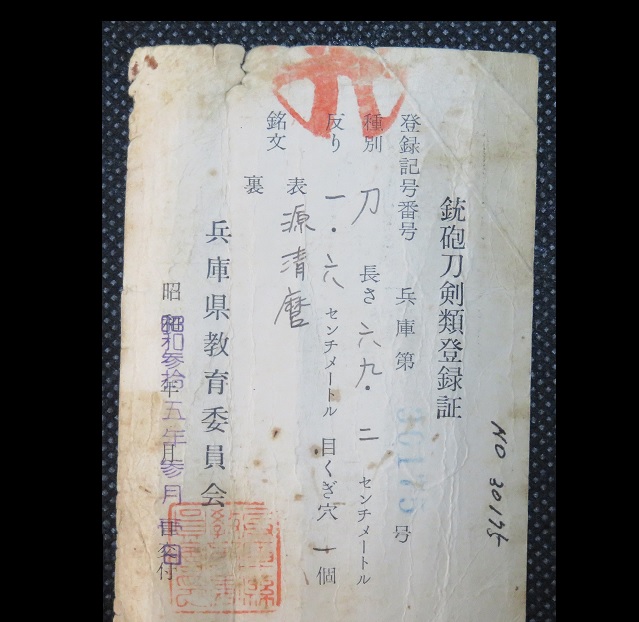 銃砲刀剣類登録証
NO 30175
登録記号番号 兵庫第 30175 号
種別 刀 長さ 六九・二 センチメートル
反り 一・六 センチメートル 目くぎ穴 1 個
銘文 表 源清麿
裏
兵庫県教育委員会
昭和参拾五年参月 日交付